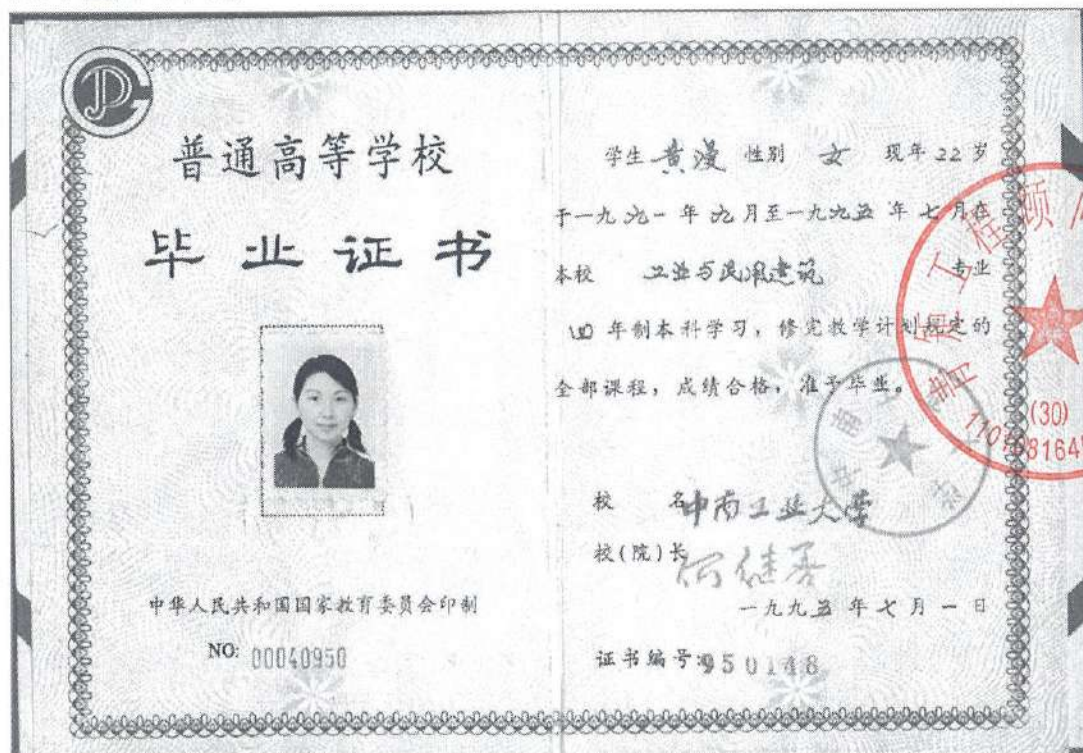 普通高等学校
毕业证书
中华人民共和国国家教育委员会印制
NO: 00040950
学生 黄漫 性别 女 现年 22 岁
于一九九一年九月至一九九五年七月在
本校 工业与民用建筑 专业
四年制本科学习，修完教学计划规定的
全部课程，成绩合格，准予毕业。
校 名 中南工业大学
校(院)长 何继善
一九九五年七月一日
证书编号: 950148
工程顾
(30)